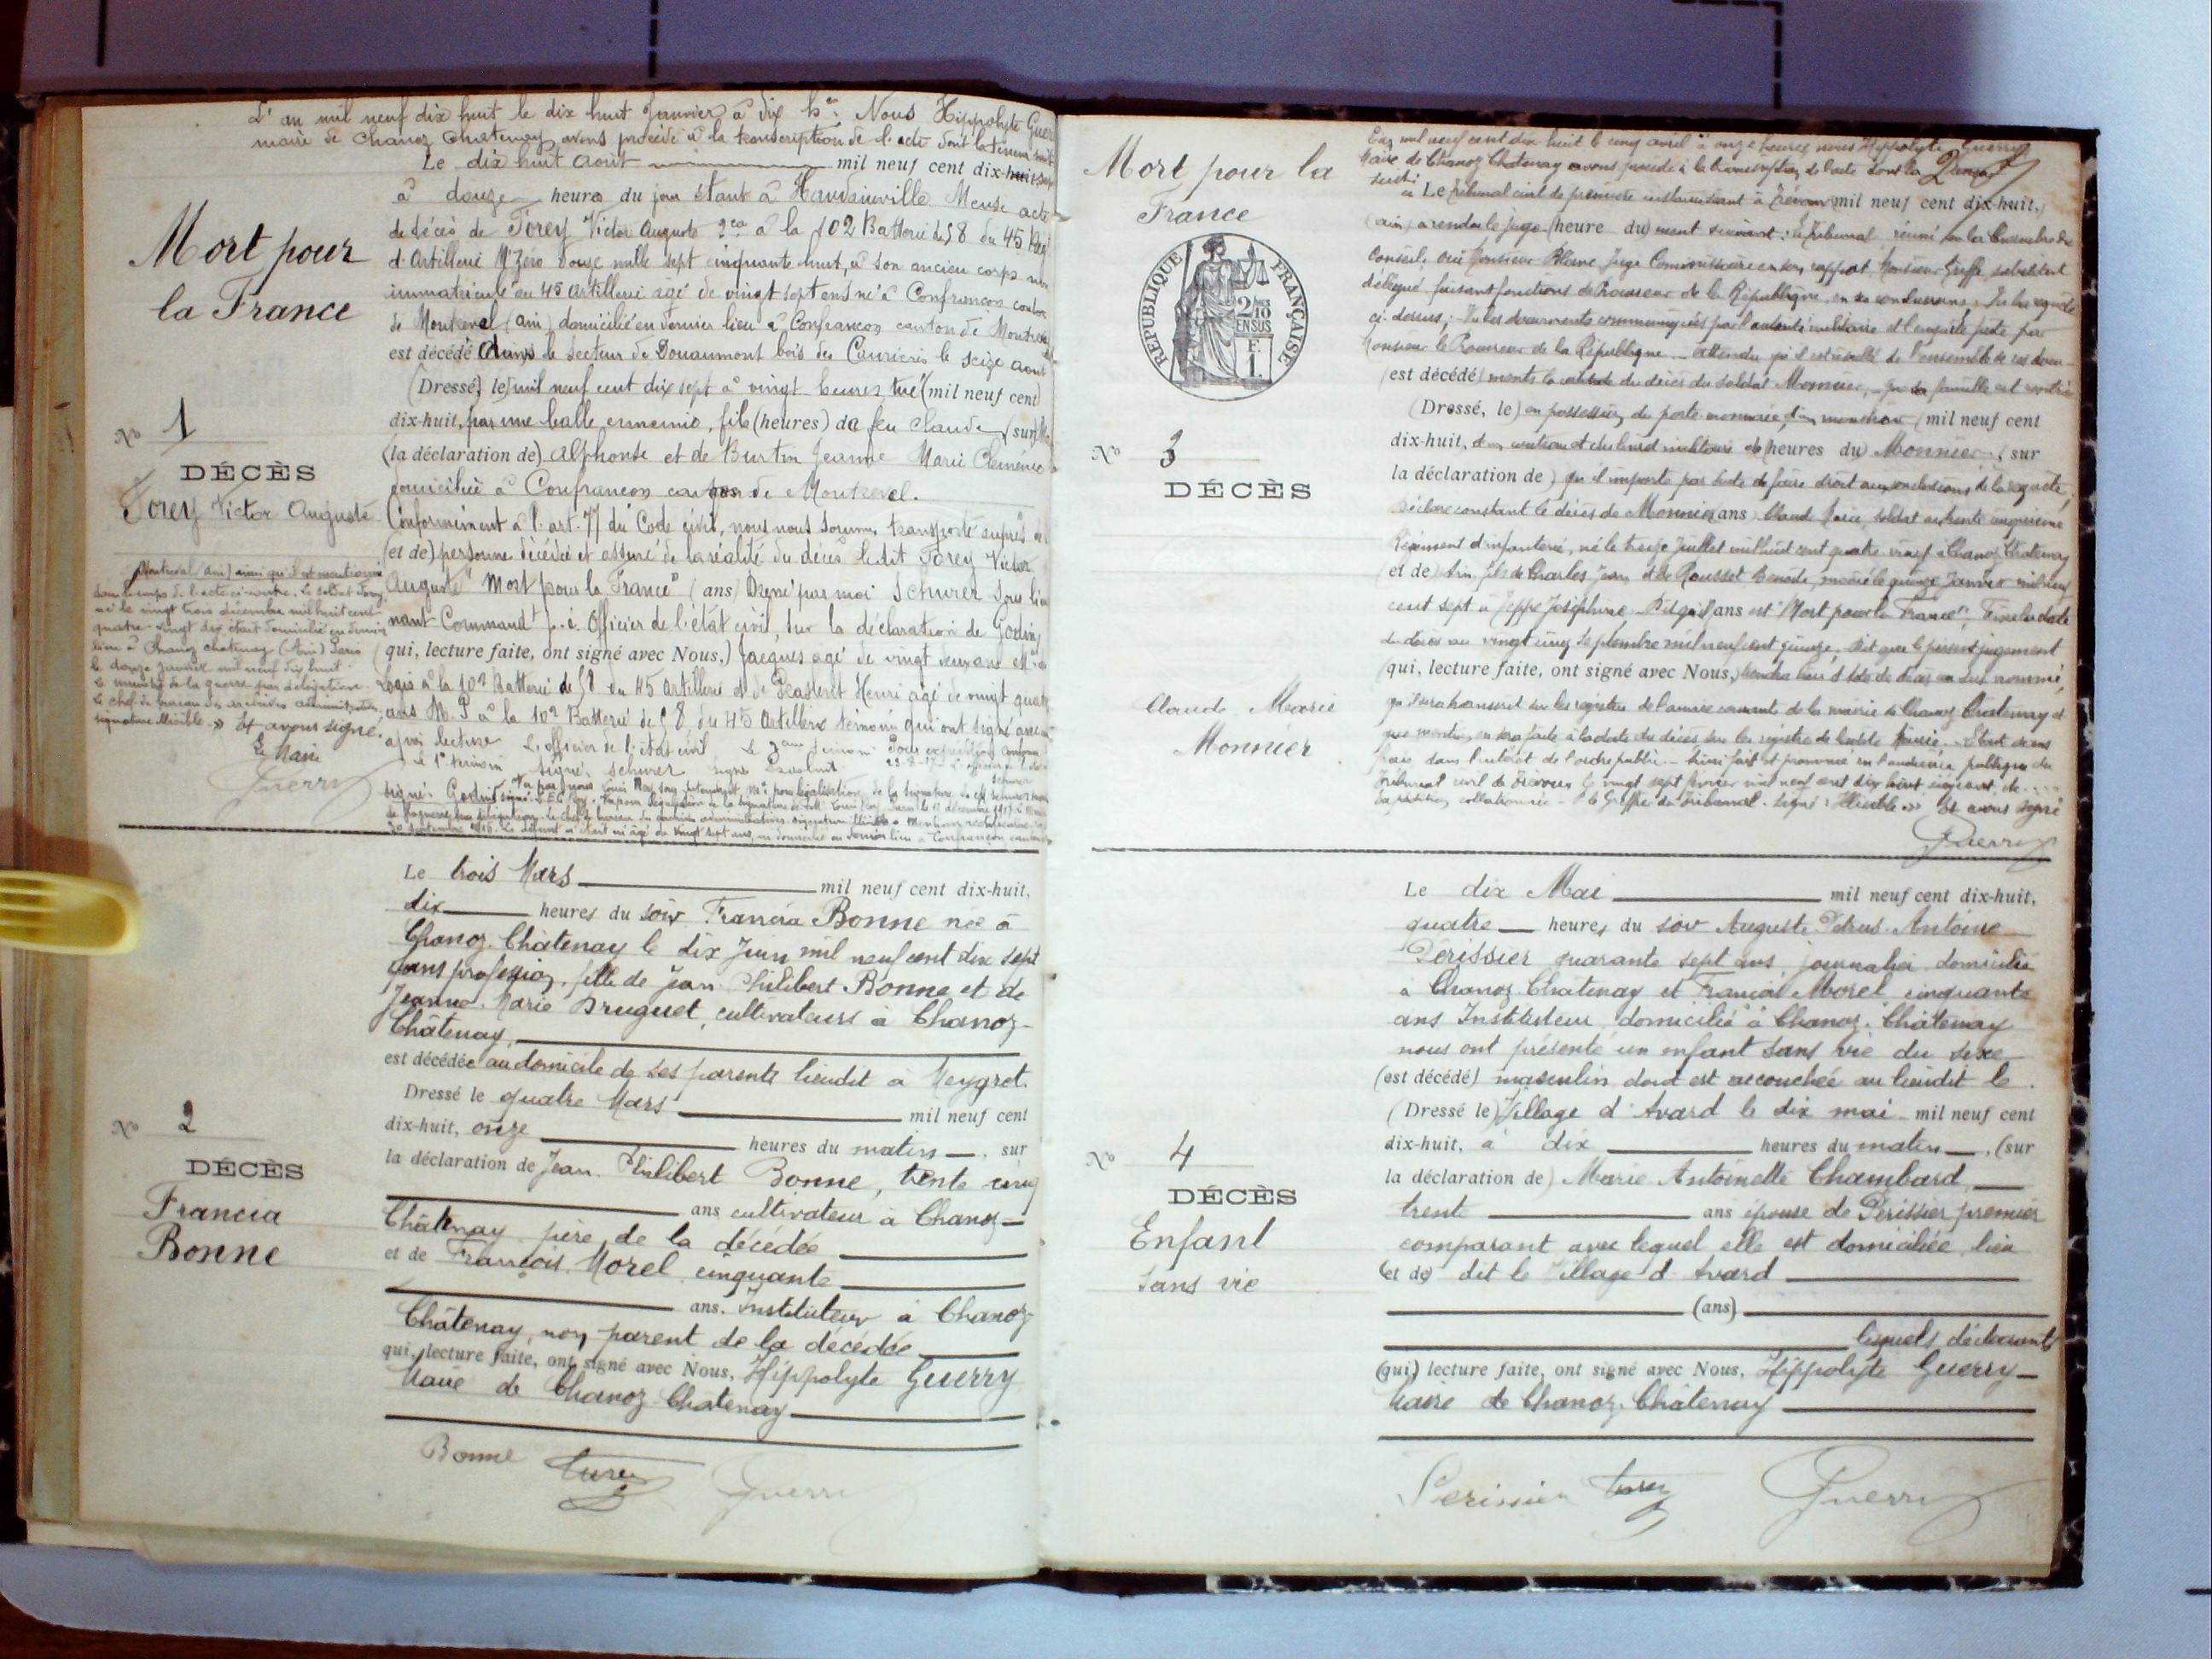 L'an mil neuf dix huit le dix huit Janvier à dix hes. Nous Hippolyte Guerry
maire de Chanoz Chatenay avons procédé à la transcription de l'acte dont la teneur suit
Le dix huit Aout mil neuf cent dix-huit sept
à douze heures du jour étant à Haudainville Meuse acte
de décès de Forey Victor Auguste 2ca à la 102 Batterie de 58 du 45 Régt
d'Artillerie Mle Zéro douze mille sept cinquante huit, à son ancien corps
immatriculé au 45 Artillerie agé de vingt sept ans né à Confrancon canton
de Montrevel (ain) domicilié en dernier lieu à Confrancon canton de Montrevel
est décédé dans le secteur de Douaumont bois des Caurieres le seize aout
(Dressé, le) mil neuf cent dix sept à vingt heures, tué (mil neuf cent)
dix-huit, par une balle ennemie, fils (heures) de feu Claude (sur)
(la déclaration de) Alphonse et de Burtin Jeanne Marie Clémence
domiciliée à Confrancon canton de Montrevel.
Conformément à l'art. 77 du Code civil, nous nous sommes transporté auprès de
(et de) personne décédée et assuré de la réalité du décès ledit Forey Victor
Auguste "Mort pour la France" (ans) Dressé par moi Schurer Sous lieu
nant Commandt p. i. Officier de l'état civil, sur la déclaration de Godin
(qui, lecture faite, ont signé avec Nous,) Jacques agé de vingt deux ans Mal des
Logis à la 102 Batterie de 58 du 45 Artillerie et de Henri agé de vingt quatre
ans M. P à la 102 Batterie de 58 du 45 Artillerie témoins qui ont signé avec
après lecture L'officier de l'état civil Le 2eme témoin
Le 1er témoin signé: Schurer signé
Mort pour
la France
No 1
DÉCÈS
Forey Victor Auguste
Montrevel (Ain) ainsi qu'il est mentionné
dans le corps de l'acte ci-contre. Le soldat Forey
né le vingt trois décembre mil huit cent
quatre-vingt dix était domicilié en dernier
lieu à Chanoz Chatenay (Ain) Paris
le douze janvier mil neuf dix huit.
Le ministre de la guerre par délégation
Le chef du bureau des archives administratives
signature illisible » Et avons signé.
Le Maire
Guerry
Le trois Mars mil neuf cent dix-huit,
dix heures du soir Francia Bonne née à
Chanoz-Châtenay le dix Juin mil neuf cent dix sept
sans profession, fille de Jean Philibert Bonne et de
Jeanne-Marie Druguet, cultivateurs à Chanoz-
Châtenay,
est décédée au domicile de ses parents lieudit à Meygret.
Dressé le quatre Mars mil neuf cent
dix-huit, onze heures du matin, sur
la déclaration de Jean-Philibert Bonne, trente cinq
ans cultivateur à Chanoz-
Châtenay père de la décédée
et de François Morel cinquante
ans. Instituteur à Chanoz-
Châtenay, non parent de la décédée
qui, lecture faite, ont signé avec Nous, Hippolyte Guerry
Maire de Chanoz-Chatenay
No 2
DÉCÈS
Francia
Bonne
Bonne
Guerry
Mort pour la
France
RÉPUBLIQUE FRANÇAISE
2/10
EN SUS
F.
1.
No 3
DÉCÈS
Claude Marie
Monnier
L'an mil neuf cent dix huit le cinq avril à onze heures nous Hippolyte Guerry
Maire de Chanoz Châtenay avons procédé à la transcription de l'acte dont la
suit:
« Le Tribunal civil de première instance séant à Trévoux mil neuf cent dix-huit,
(ain) a rendu le juge (heure du) ment suivant: Le Tribunal réuni en la Chambre du
Conseil, ouï Monsieur Blanc Juge Commissaire en son rapport, Monsieur Greffe, substitut
délégué, faisant fonctions de Procureur de la République, en ses conclusions; Vu la requête
ci-dessus; Vu les documents communiqués par l'autorité militaire et l'enquête faite par
Monsieur le Procureur de la République. Attendu qu'il est résulté de l'ensemble de ces docu
(est décédé) ments la certitude du décès du soldat Monnier, que sa famille est rentrée
(Dressé, le) en possession du porte monnaie, d'un mouchoir (mil neuf cent
dix-huit, d'un couteau et du livret militaire de (heures du) Monnier (sur
la déclaration de) qu'il importe par suite de faire droit aux conclusions de la requête,
Déclare constant le décès de Monnier (ans) Claude Marie, soldat au trente cinquième
Régiment d'infanterie, né le treize Juillet mil huit cent quatre vingt à Chanoz Châtenay
(et de) Ain, fils de Charles Jean et de Rousset Benoite, marié le quinze Janvier mil neuf
cent sept à Joséphine. Dit qu'il (ans) est "Mort pour la France", Fixe la date
du décès au vingt cinq Septembre mil neuf cent quinze. Dit que le présent jugement
(qui, lecture faite, ont signé avec Nous,) tiendra lieu d'acte de décès au sus nommé,
qu'il sera transcrit sur les registres de l'année courante de la mairie de Chanoz Chatenay et
que mention en sera faite à la date du décès sur les registres de ladite Mairie.
frais dans l'intérêt de l'ordre public. Ainsi fait et prononcé en l'audience publique du
Tribunal civil de Trévoux le vingt sept février mil neuf cent dix huit
collationnée - Le Greffier du Tribunal. Signé: Illisible » Et avons signé
Guerry
Le dix Mai mil neuf cent dix-huit,
quatre heures du soir Auguste Petrus Antoine
Périssier quarante sept ans, journalier domicilié
à Chanoz-Chatenay et François Morel cinquante
ans Instituteur domicilié à Chanoz-Châtenay
nous ont présenté un enfant sans vie du sexe
(est décédé) masculin dont est accouchée au lieudit le
(Dressé le) Village d'Avard le dix mai mil neuf cent
dix-huit, à dix heures du matin, (sur
la déclaration de) Marie Antoinette Chambard
trente ans épouse de Périssier premier
comparant avec lequel elle est domiciliée lieu
(et de) dit le Village d'Avard
(ans)
lesquels déclarants
(qui) lecture faite, ont signé avec Nous, Hippolyte Guerry
Maire de Chanoz-Châtenay
No 4
DÉCÈS
Enfant
sans vie
Perissier
Guerry